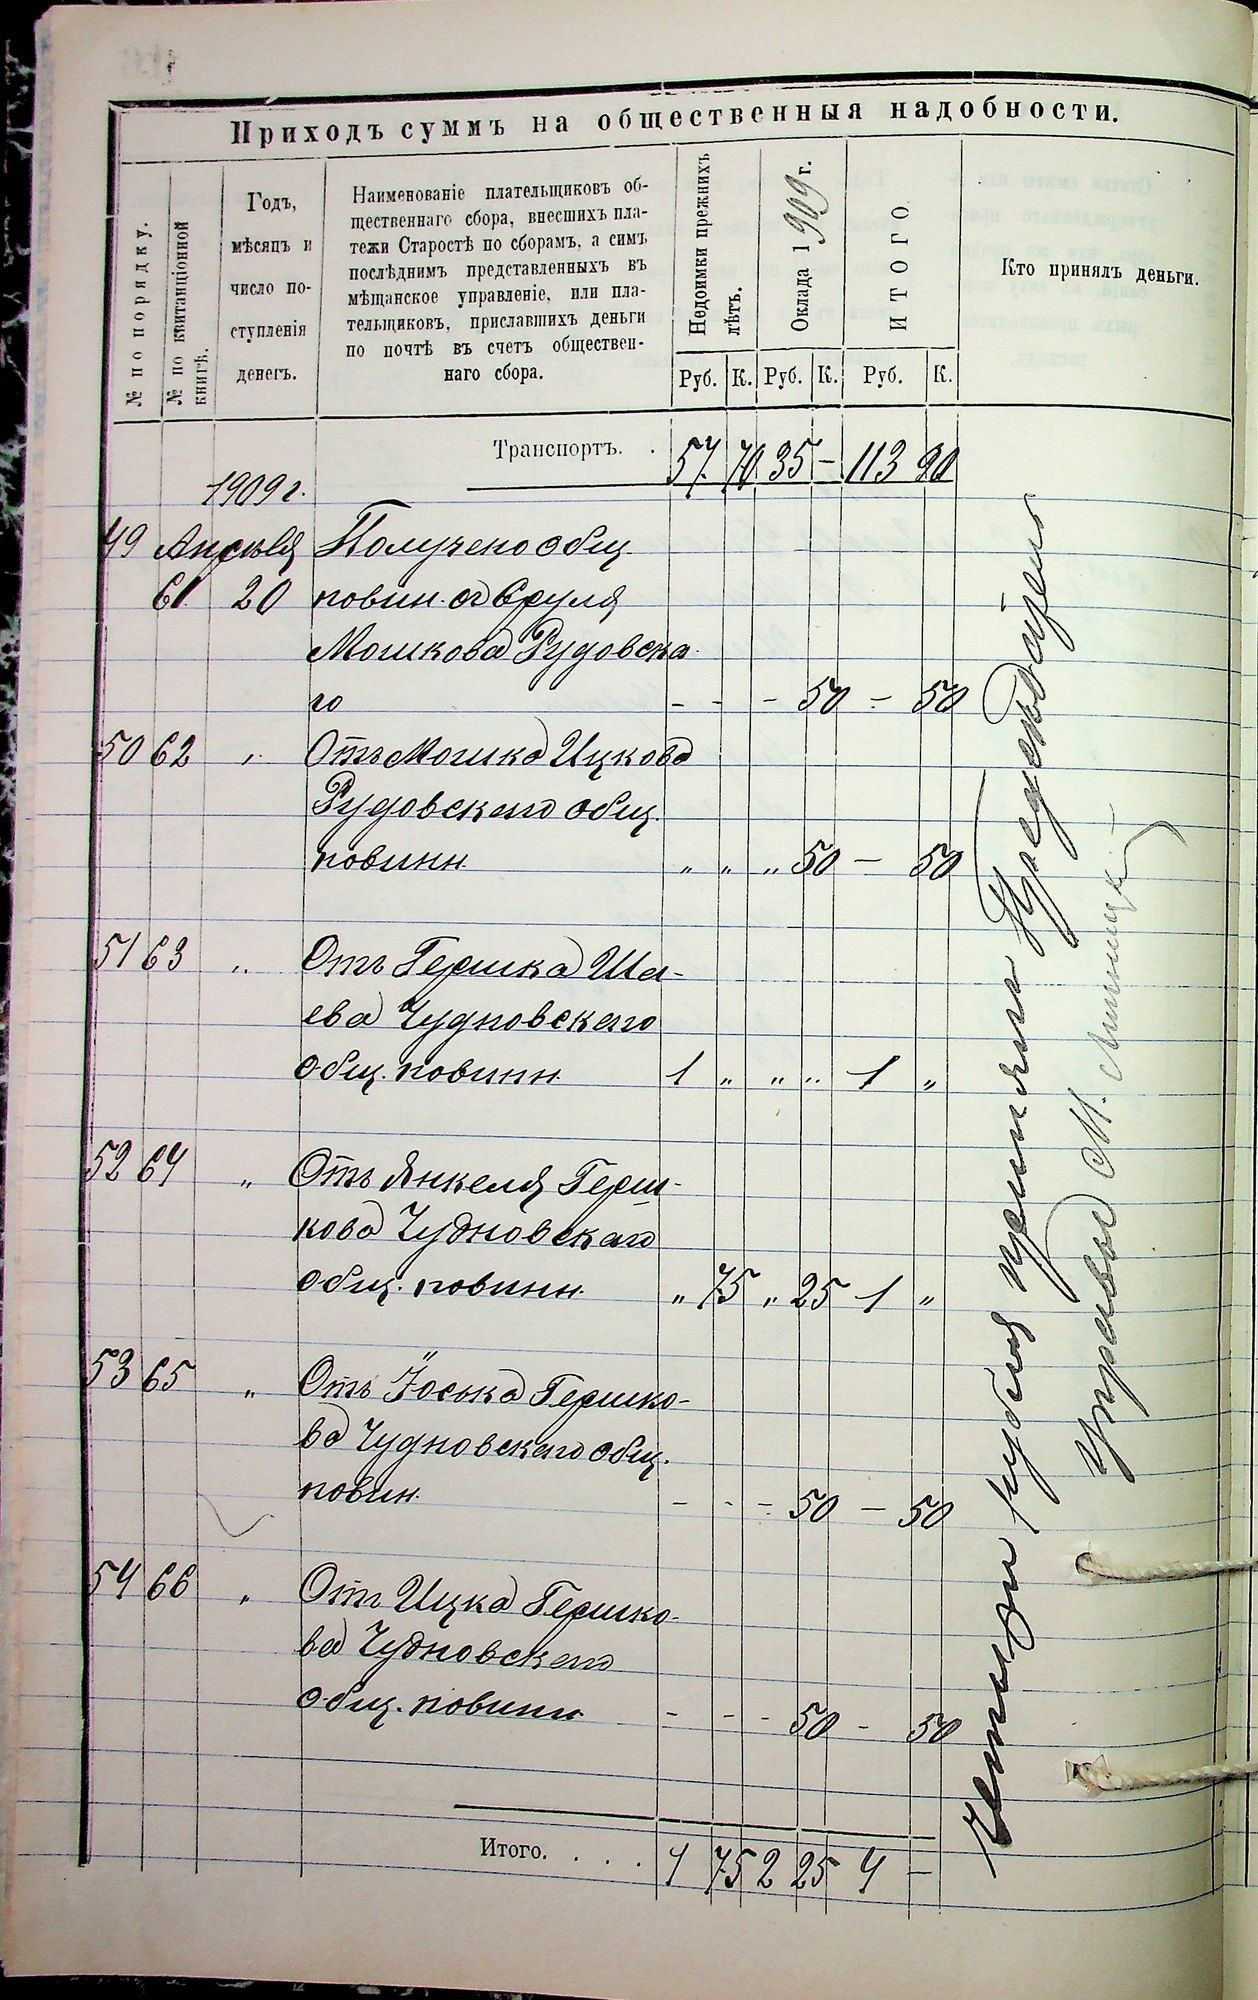 Приходъ суммъ на общественныя надобности.
№ по порядку.
№ по квитанціонной книгѣ.
Годъ,
мѣсяцъ и
число по-
ступленія
денегъ.
Наименованіе плательщиковъ об-
щественнаго сбора, внесшихъ пла-
тежи Старостѣ по сборамъ, а симъ
послѣднимъ представленныхъ въ
мѣщанское управленіе, или пла-
тельщиковъ, приславшихъ деньги
по почтѣ въ счетъ обществен-
наго сбора.
Недоимки прежнихъ лѣтъ.
Оклада 1909 г.
ИТОГО
Кто принялъ деньги.
Руб. К. Руб. К. Руб. К.
Транспортъ. . 57. 70 35 - 113 20
1909 г.
49 Апрѣля Получено общ.
61 20 повин. от Сруля
Мошкова Рудовска-
го - - - 50 - 50
50 62 " Отъ Мошка Ицкова
Рудовскаго общ.
повинн. " " " 50 - 50
51 63 " Отъ Гершка Ша-
ева Чудновскаго
общ. повинн. 1 " " " 1 "
52 64 " Отъ Янкеля Герш-
кова Чудновскаго
общ. повинн. " 75 " 25 1 "
53 65 " Отъ Іоська Гершко-
ва Чудновскаго общ.
повин. - - - 50 - 50
54 66 " Отъ Ицка Гершко-
ва Чудновскаго
общ. повинн. - - - 50 - 50
Итого. . . . . 1 75 2 25 4 -
Четыри рубля принялъ Предсѣдатель
Управы М.